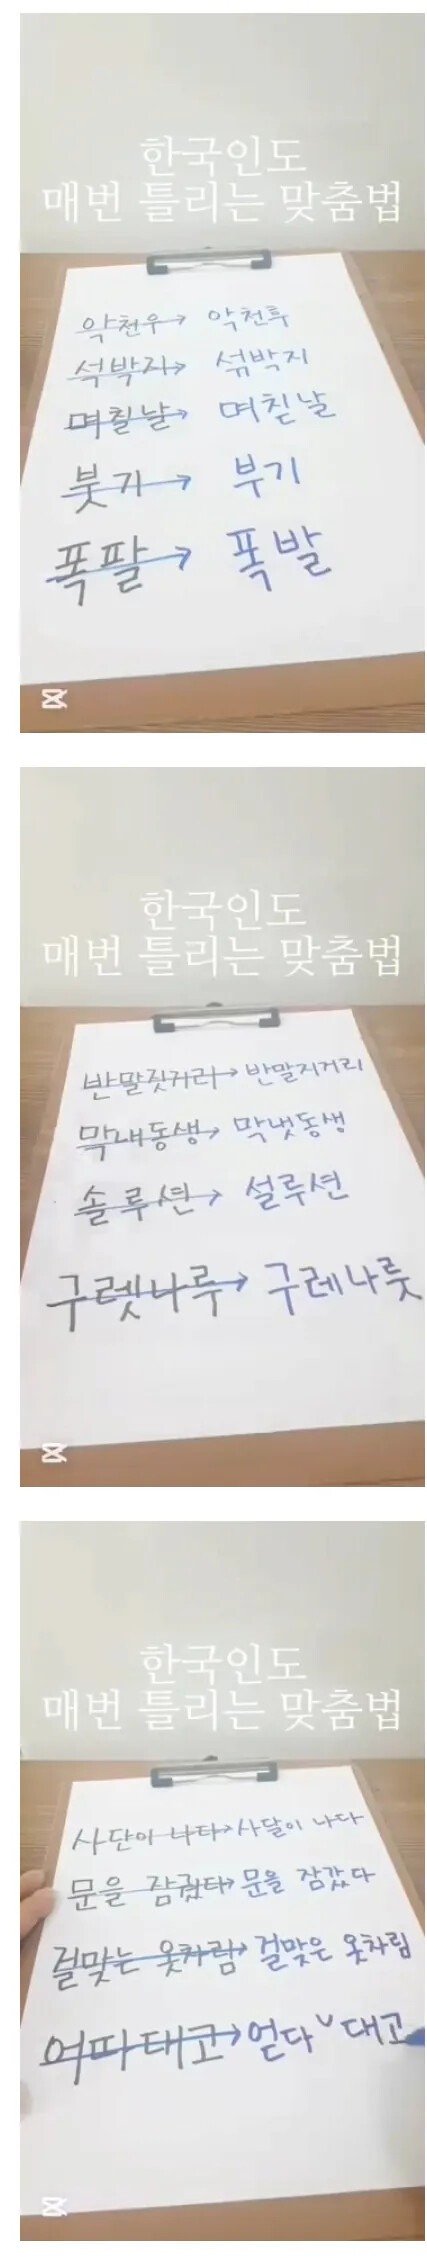 한국인도
매번 틀리는 맞춤법
악천우→ 악천후
석박지→ 섞박지
며칠날→ 며칟날
붓기→ 부기
폭팔→ 폭발
한국인도
매번 틀리는 맞춤법
반말짓거리→ 반말지거리
막내동생→ 막냇동생
솔루션→ 설루션
구렛나루→ 구레나룻
한국인도
매번 틀리는 맞춤법
사단이 나다→ 사달이 나다
문을 잠궜다→ 문을 잠갔다
걸맞는 옷차림→ 걸맞은 옷차림
여따 대고→ 얻다∨대고